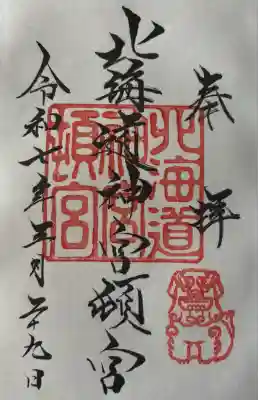 奉拝
北海道神宮頓宮
令和七年五月二十九日
北海道
神宮
頓宮